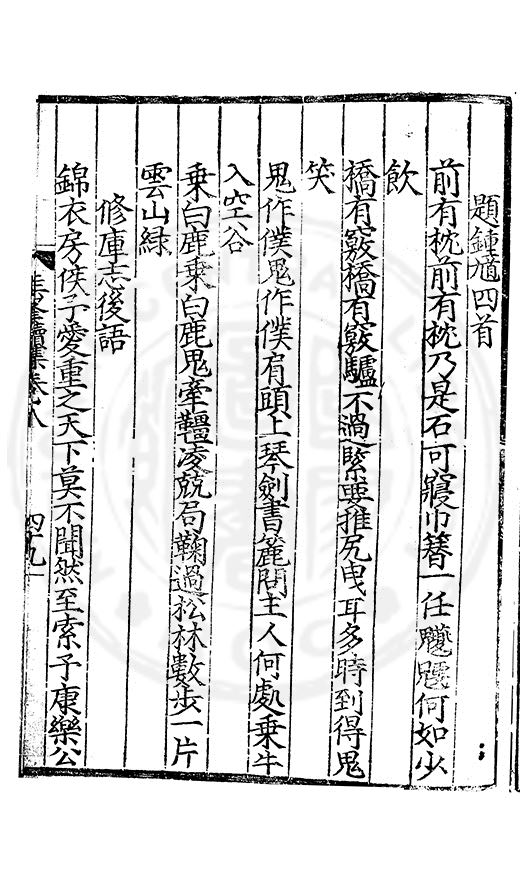 題鍾馗四首
前有枕前有枕乃是石可寢巾簪一任何如少
飲
橋有竅橋有竅驢不過緊要推尻曳耳多時到得鬼
笑
鬼作僕鬼作僕肩頭上琴劍書簏問主人何處乗牛
入空谷
乗白鹿乗白鹿鬼牽韁凌兢局鞠過松林數步一片
雲山緑
修庫志後語
錦衣房侯子愛重之天下莫不聞然至索予康樂公
續集卷八
四十九